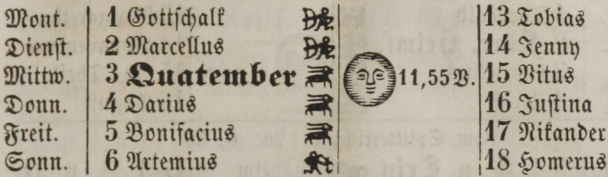 Mont. 1 Gottschalk 13 Tobias
Dienst. 2 Marcellus 14 Jenny
Mittw. 3 Quatember 11,55 V. 15 Vitus
Donn. 4 Darius 16 Justina
Freit. 5 Bonifacius 17 Nikander
Sonn. 6 Artemius 18 Homerus